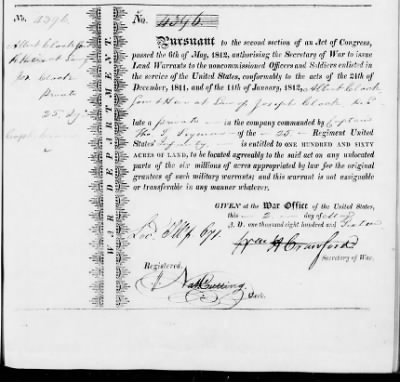 No. 4396.
Albert Clark
Heir at Law of
Jos. Clark
Private
25. Inf.
WAR DEPARTMENT.
No. 4396.
Pursuant to the second section of an Act of Congress,
passed the 6th of May, 1812, authorising the Secretary of War to issue
Land Warrants to the noncommissioned Officers and Soldiers enlisted in
the service of the United States, conformably to the acts of the 24th of
December, 1811, and of the 11th of January, 1812, Albert Clark
Heir at Law of Joseph Clark
late a private in the company commanded by Captain
of the 25 Regiment United
States' Infantry is entitled to ONE HUNDRED AND SIXTY
ACRES OF LAND, to be located agreeably to the said act on any unlocated
parts of the six millions of acres appropriated by law for the original
grantees of such military warrants; and this warrant is not assignable
or transferable in any manner whatever.
GIVEN at the War Office of the United States,
this 2 day of
A. D. one thousand eight hundred and
Wm H Crawford
Secretary of War.
Registered,